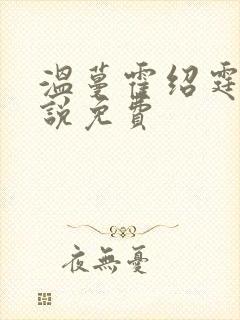 温蔓霍绍霆
說免費
夜無憂